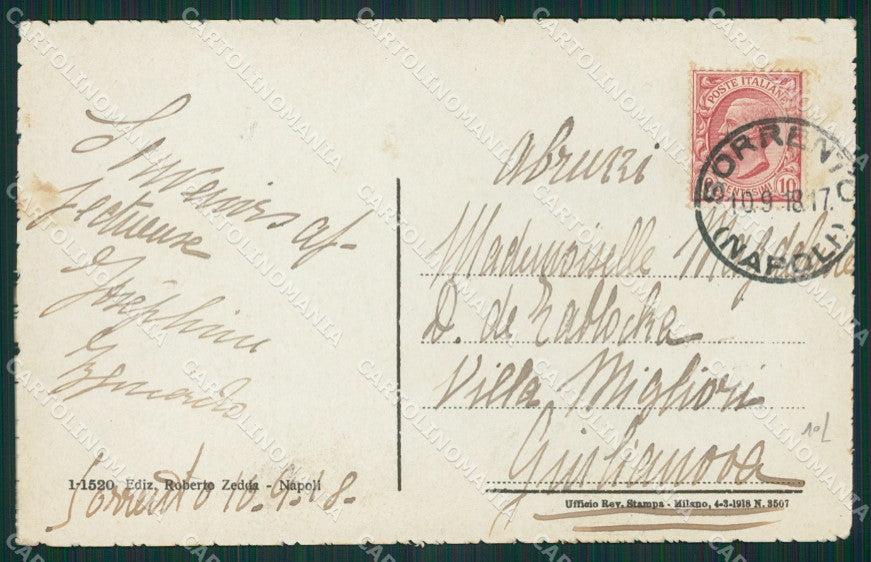 Souvenirs af-
fectueuse
Joséphine
Sorrento 10.9.18.
1-1520 Ediz. Roberto Zedda - Napoli
POSTE ITALIANE
CENTESIMI 10
SORRENTO
10.9.18.17.
(NAPOLI)
Abruzzi
Mademoiselle
D. de Zablocka
Villa Migliori
Giulianova
Ufficio Rev. Stampa - Milano, 4-3-1918 N. 3507
CARTOLINOMANIA